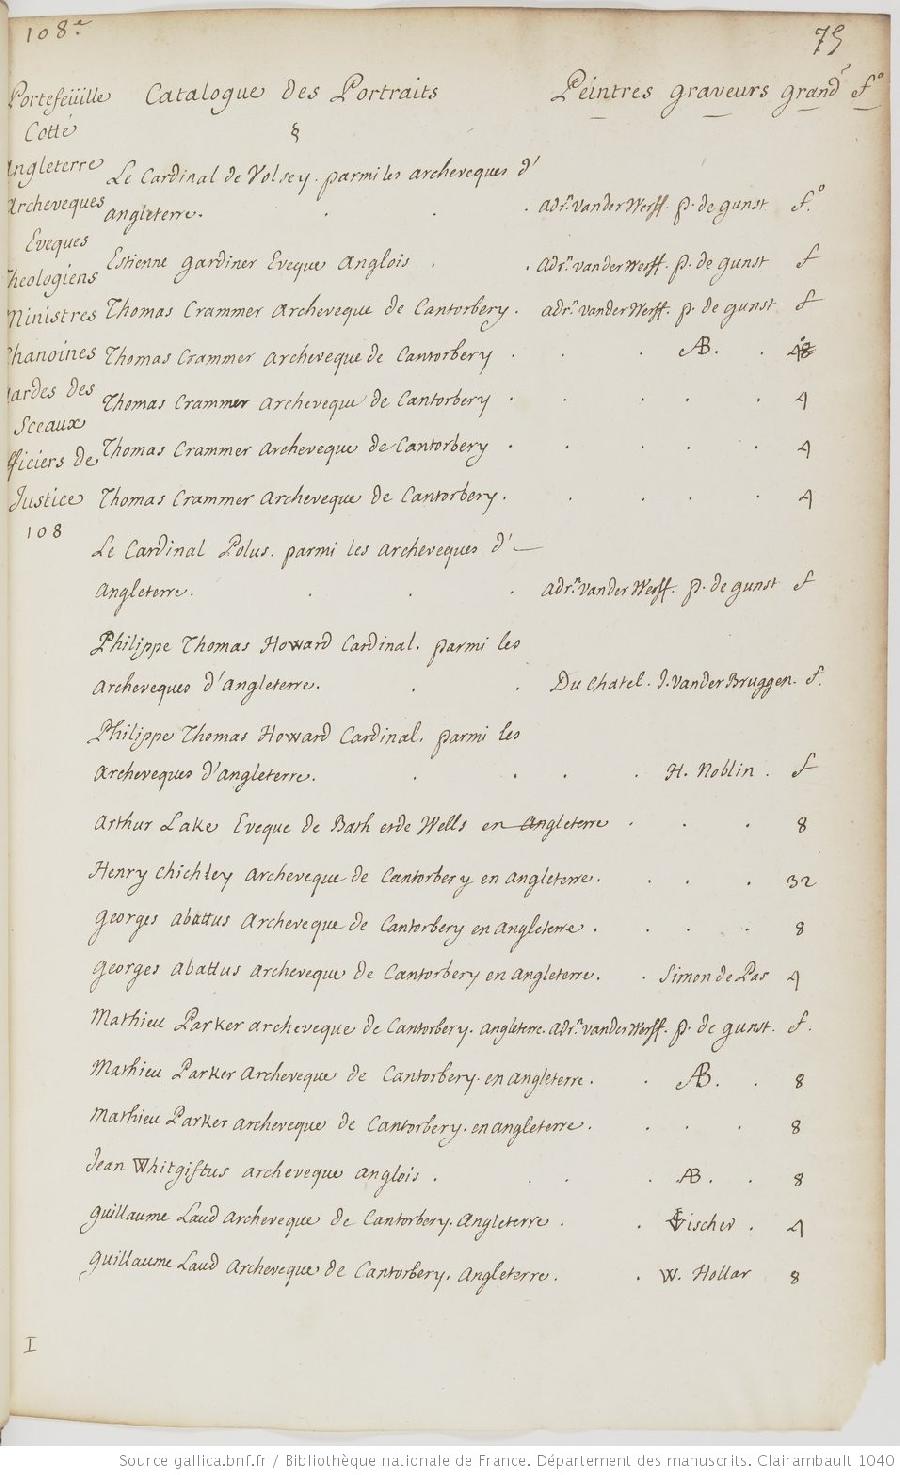 108.e
75
Portefeüille Catalogue des Portraits Peintres graveurs grandr fo
Cotté §
Angleterre
Archeveques
Eveques
Theologiens
Ministres
Chanoines
gardes des
Sceaux
officiers de
Justice
108
Le Cardinal de Volsey. parmi les archeveques d'
angleterre. . . . adr.n vander Werff. p. de gunst f.o
Estienne gardiner Eveque Anglois . . adr.n vander Werff. p. de gunst f
Thomas Crammer Archeveque de Cantorbery. adr.n vander Werff. p. de gunst f
Thomas Crammer Archeveque de Cantorbery . . . AB. .
Thomas Crammer Archeveque de Cantorbery . . . . . 4
Thomas Crammer Archeveque de Cantorbery . . . . . 4
Thomas Crammer Archeveque de Cantorbery. . . . . 4
Le Cardinal Polus. parmi les archeveques d'—
Angleterre. . . . adr.n vander Werff. p. de gunst f
Philippe Thomas Howard Cardinal. parmi les
Archeveques d'Angleterre. . . Du Chatel. J. vander Bruggen. f.
Philippe Thomas Howard Cardinal. parmi les
Archeveques d'angleterre. . . . . H. Noblin . f
Arthur Lake Eveque de Bath et de Wells en Angleterre . . . 8
Henry Chichley Archeveque de Cantorbery en angleterre. . . . 32
georges abattus Archeveque de Cantorbery en Angleterre . . . . 8
georges abattus archeveque de Cantorbery en angleterre. . Simon de Pas 4
Mathieu Parker archeveque de Cantorbery. angleterre. adr.n vander Werff. p. de gunst. f.
Mathieu Parker Archeveque de Cantorbery. en angleterre . . AB. . 8
Mathieu Parker archeveque de Cantorbery. en angleterre . . . . 8
Jean Whitgiftus archeveque anglois . . . AB. . 8
guillaume Laud Archeveque de Cantorbery. Angleterre . . Vischer . 4
guillaume Laud Archeveque de Cantorbery. Angleterre. . W. Hollar 8
I
Source gallica.bnf.fr / Bibliothèque nationale de France. Département des manuscrits. Clairambault 1040